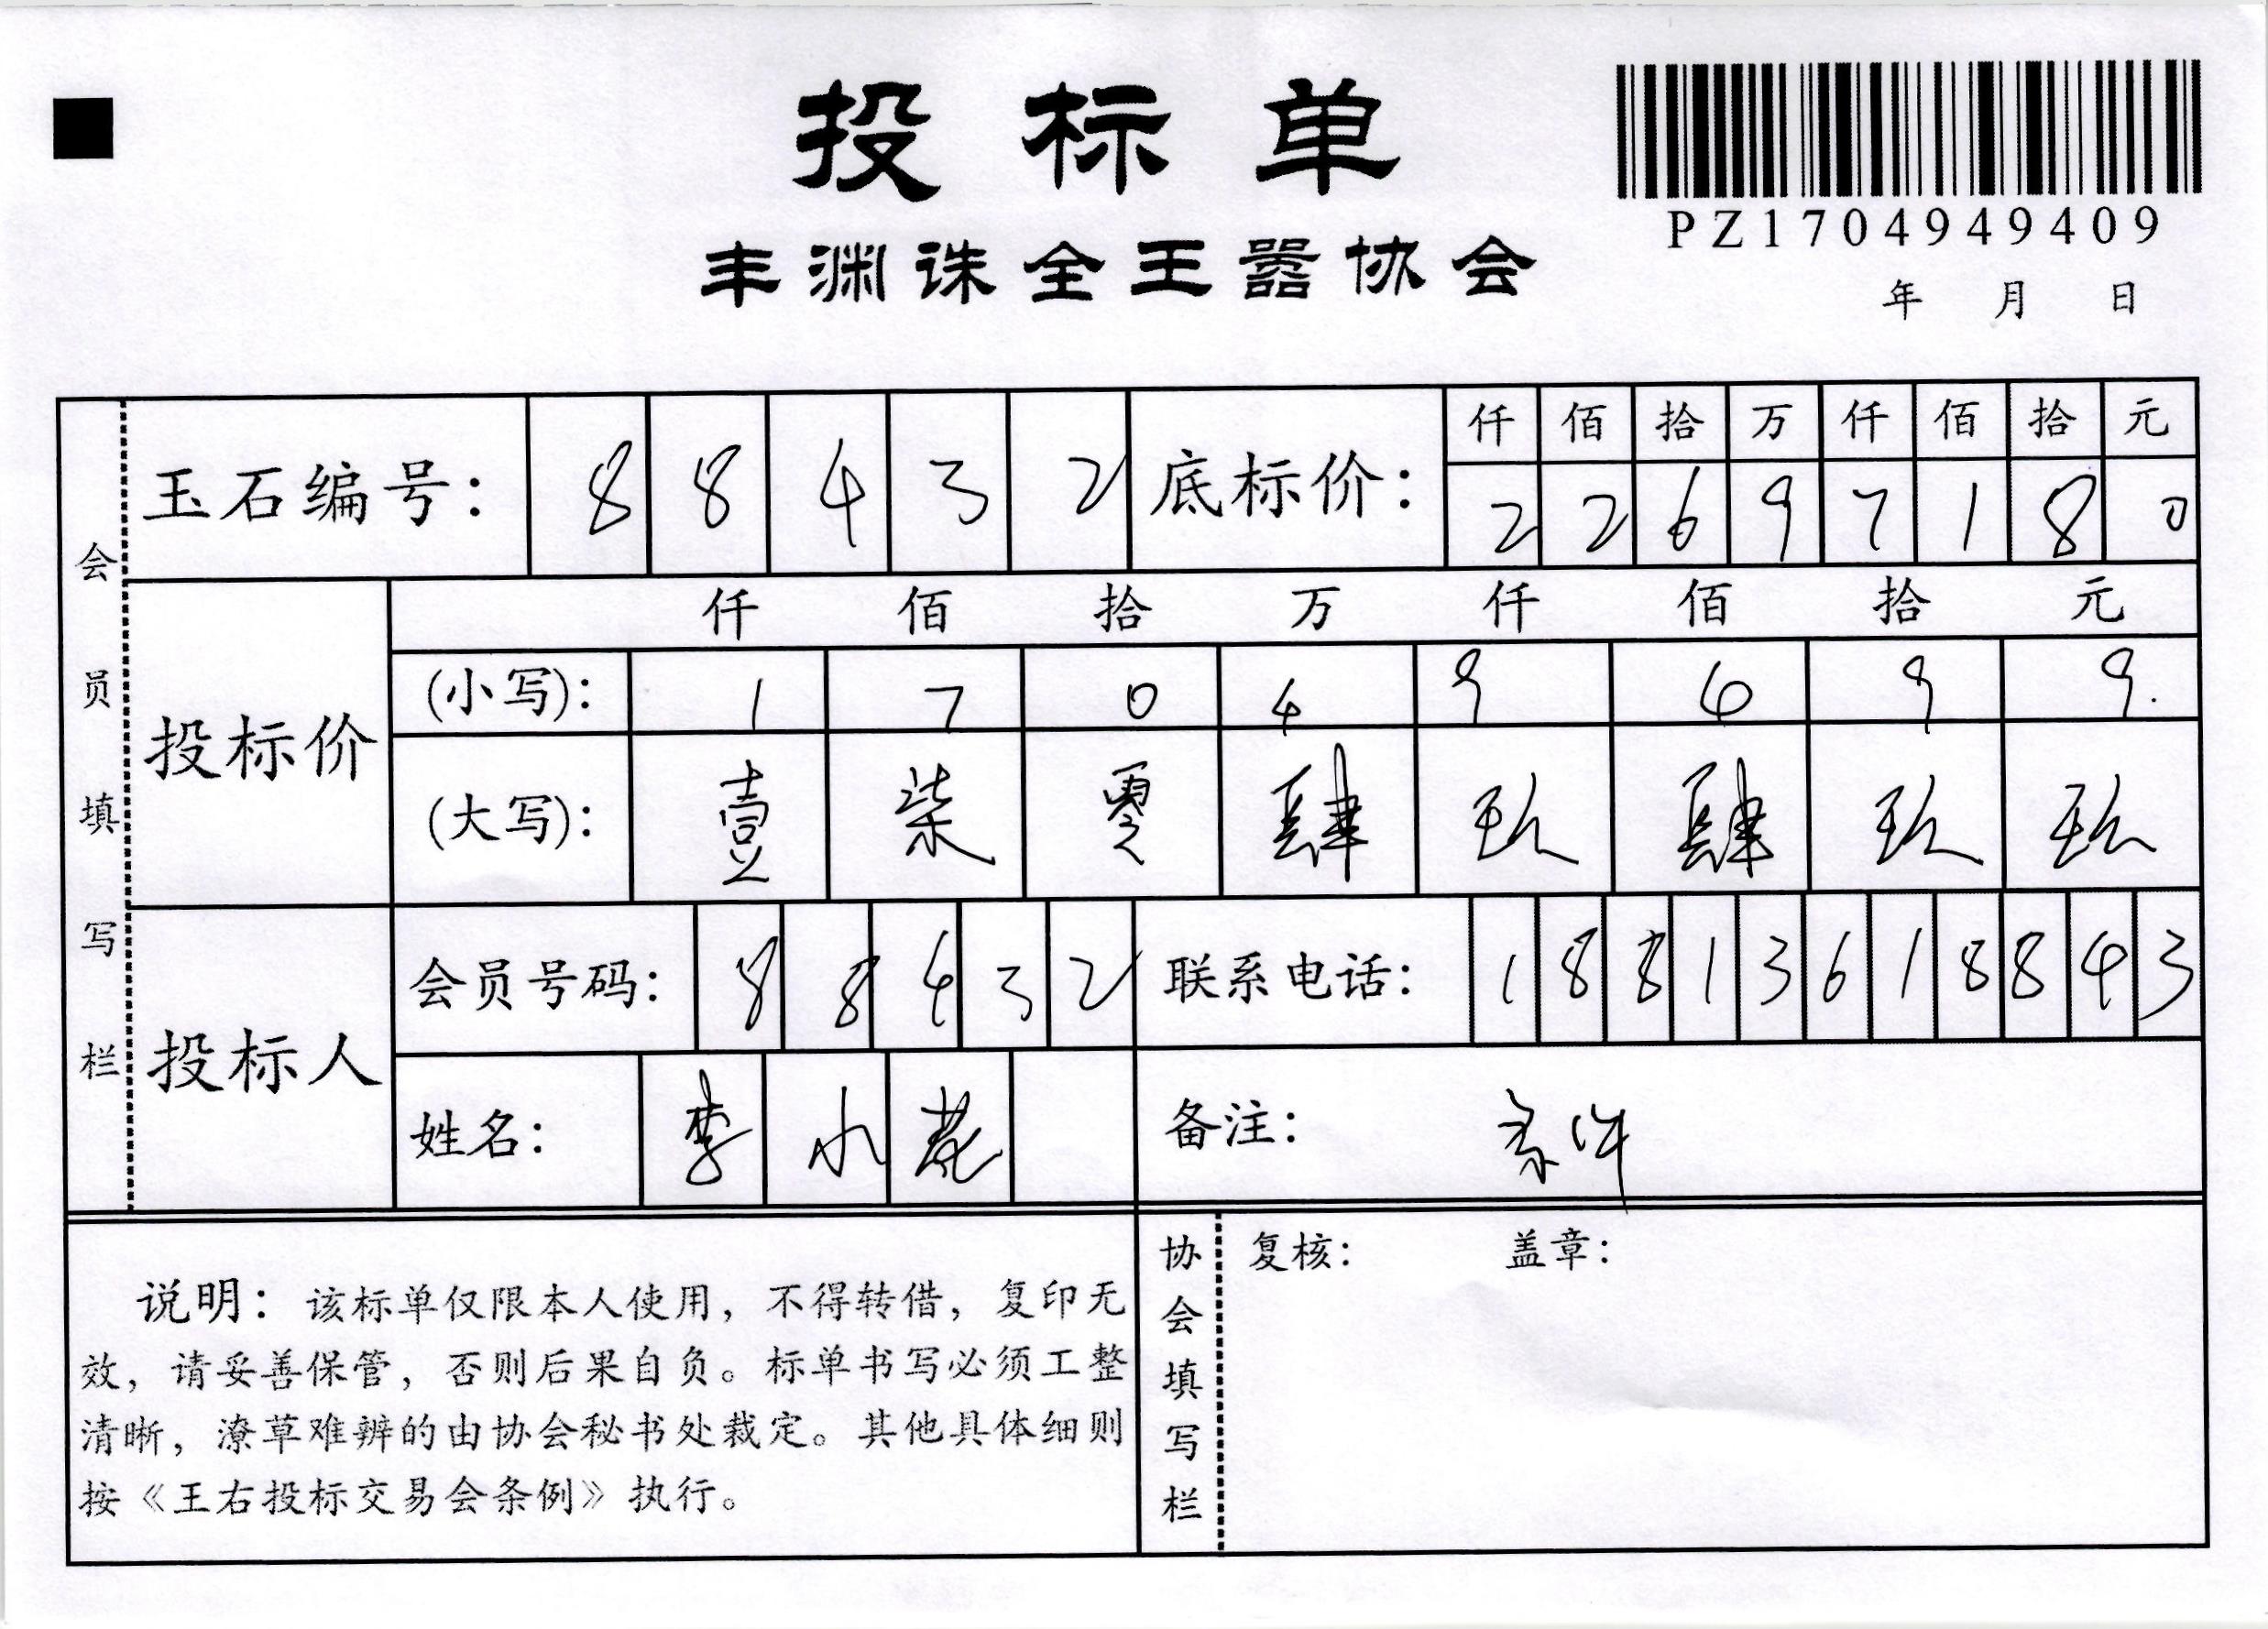 投标单
PZ1704949409
丰渊诛全王嚣协会
年 月 日
会员填写栏
玉石编号: 8 8 4 3 2
底标价: 仟 佰 拾 万 仟 佰 拾 元
2 2 6 9 7 1 8 0
投标价
仟 佰 拾 万 仟 佰 拾 元
(小写): 1 7 0 4 9 4 9 9.
(大写): 壹 柒 零 肆 玖 肆 玖 玖
投标人
会员号码: 8 8 4 3 2
联系电话: 1 8 8 1 3 6 1 8 8 4 3
姓名: 李 小 花
备注:
说明: 该标单仅限本人使用, 不得转借, 复印无
效, 请妥善保管, 否则后果自负。标单书写必须工整
清晰, 潦草难辨的由协会秘书处裁定。其他具体细则
按《王右投标交易会条例》执行。
协会填写栏
复核: 盖章: